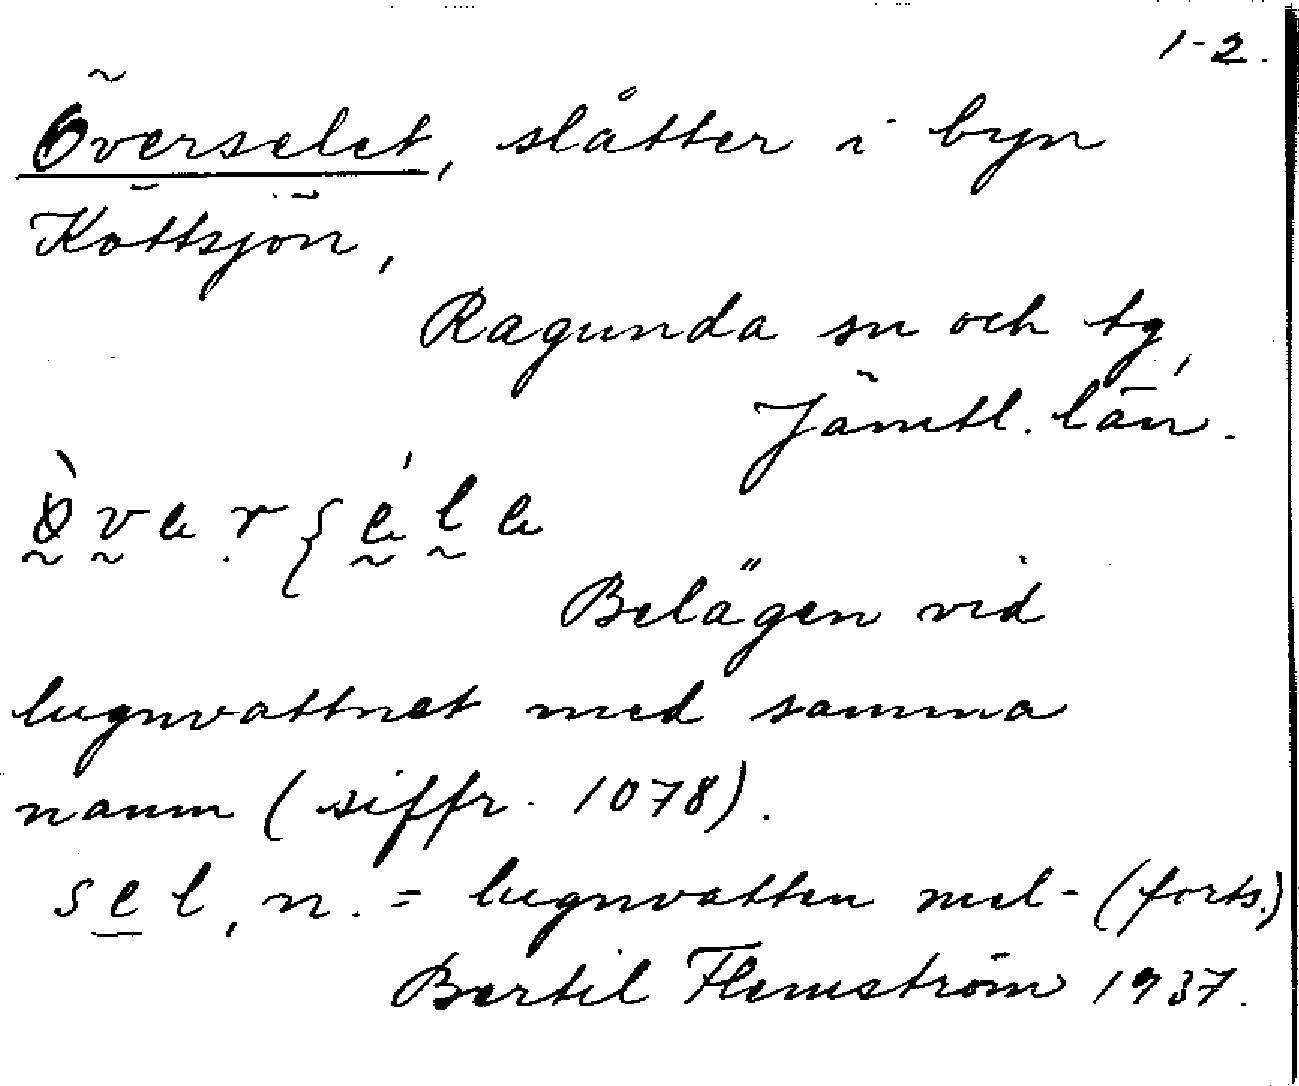 1-2.
Överselet, slåtter i byn
Köttsjön,
Ragunda sn och tg,
Jämtl. län.
Belägen vid
lugnvattnet med samma
namn (siffr. 1078).
sel, n. = lugnvatten mel- (forts.)
Bertil Flemström 1937.